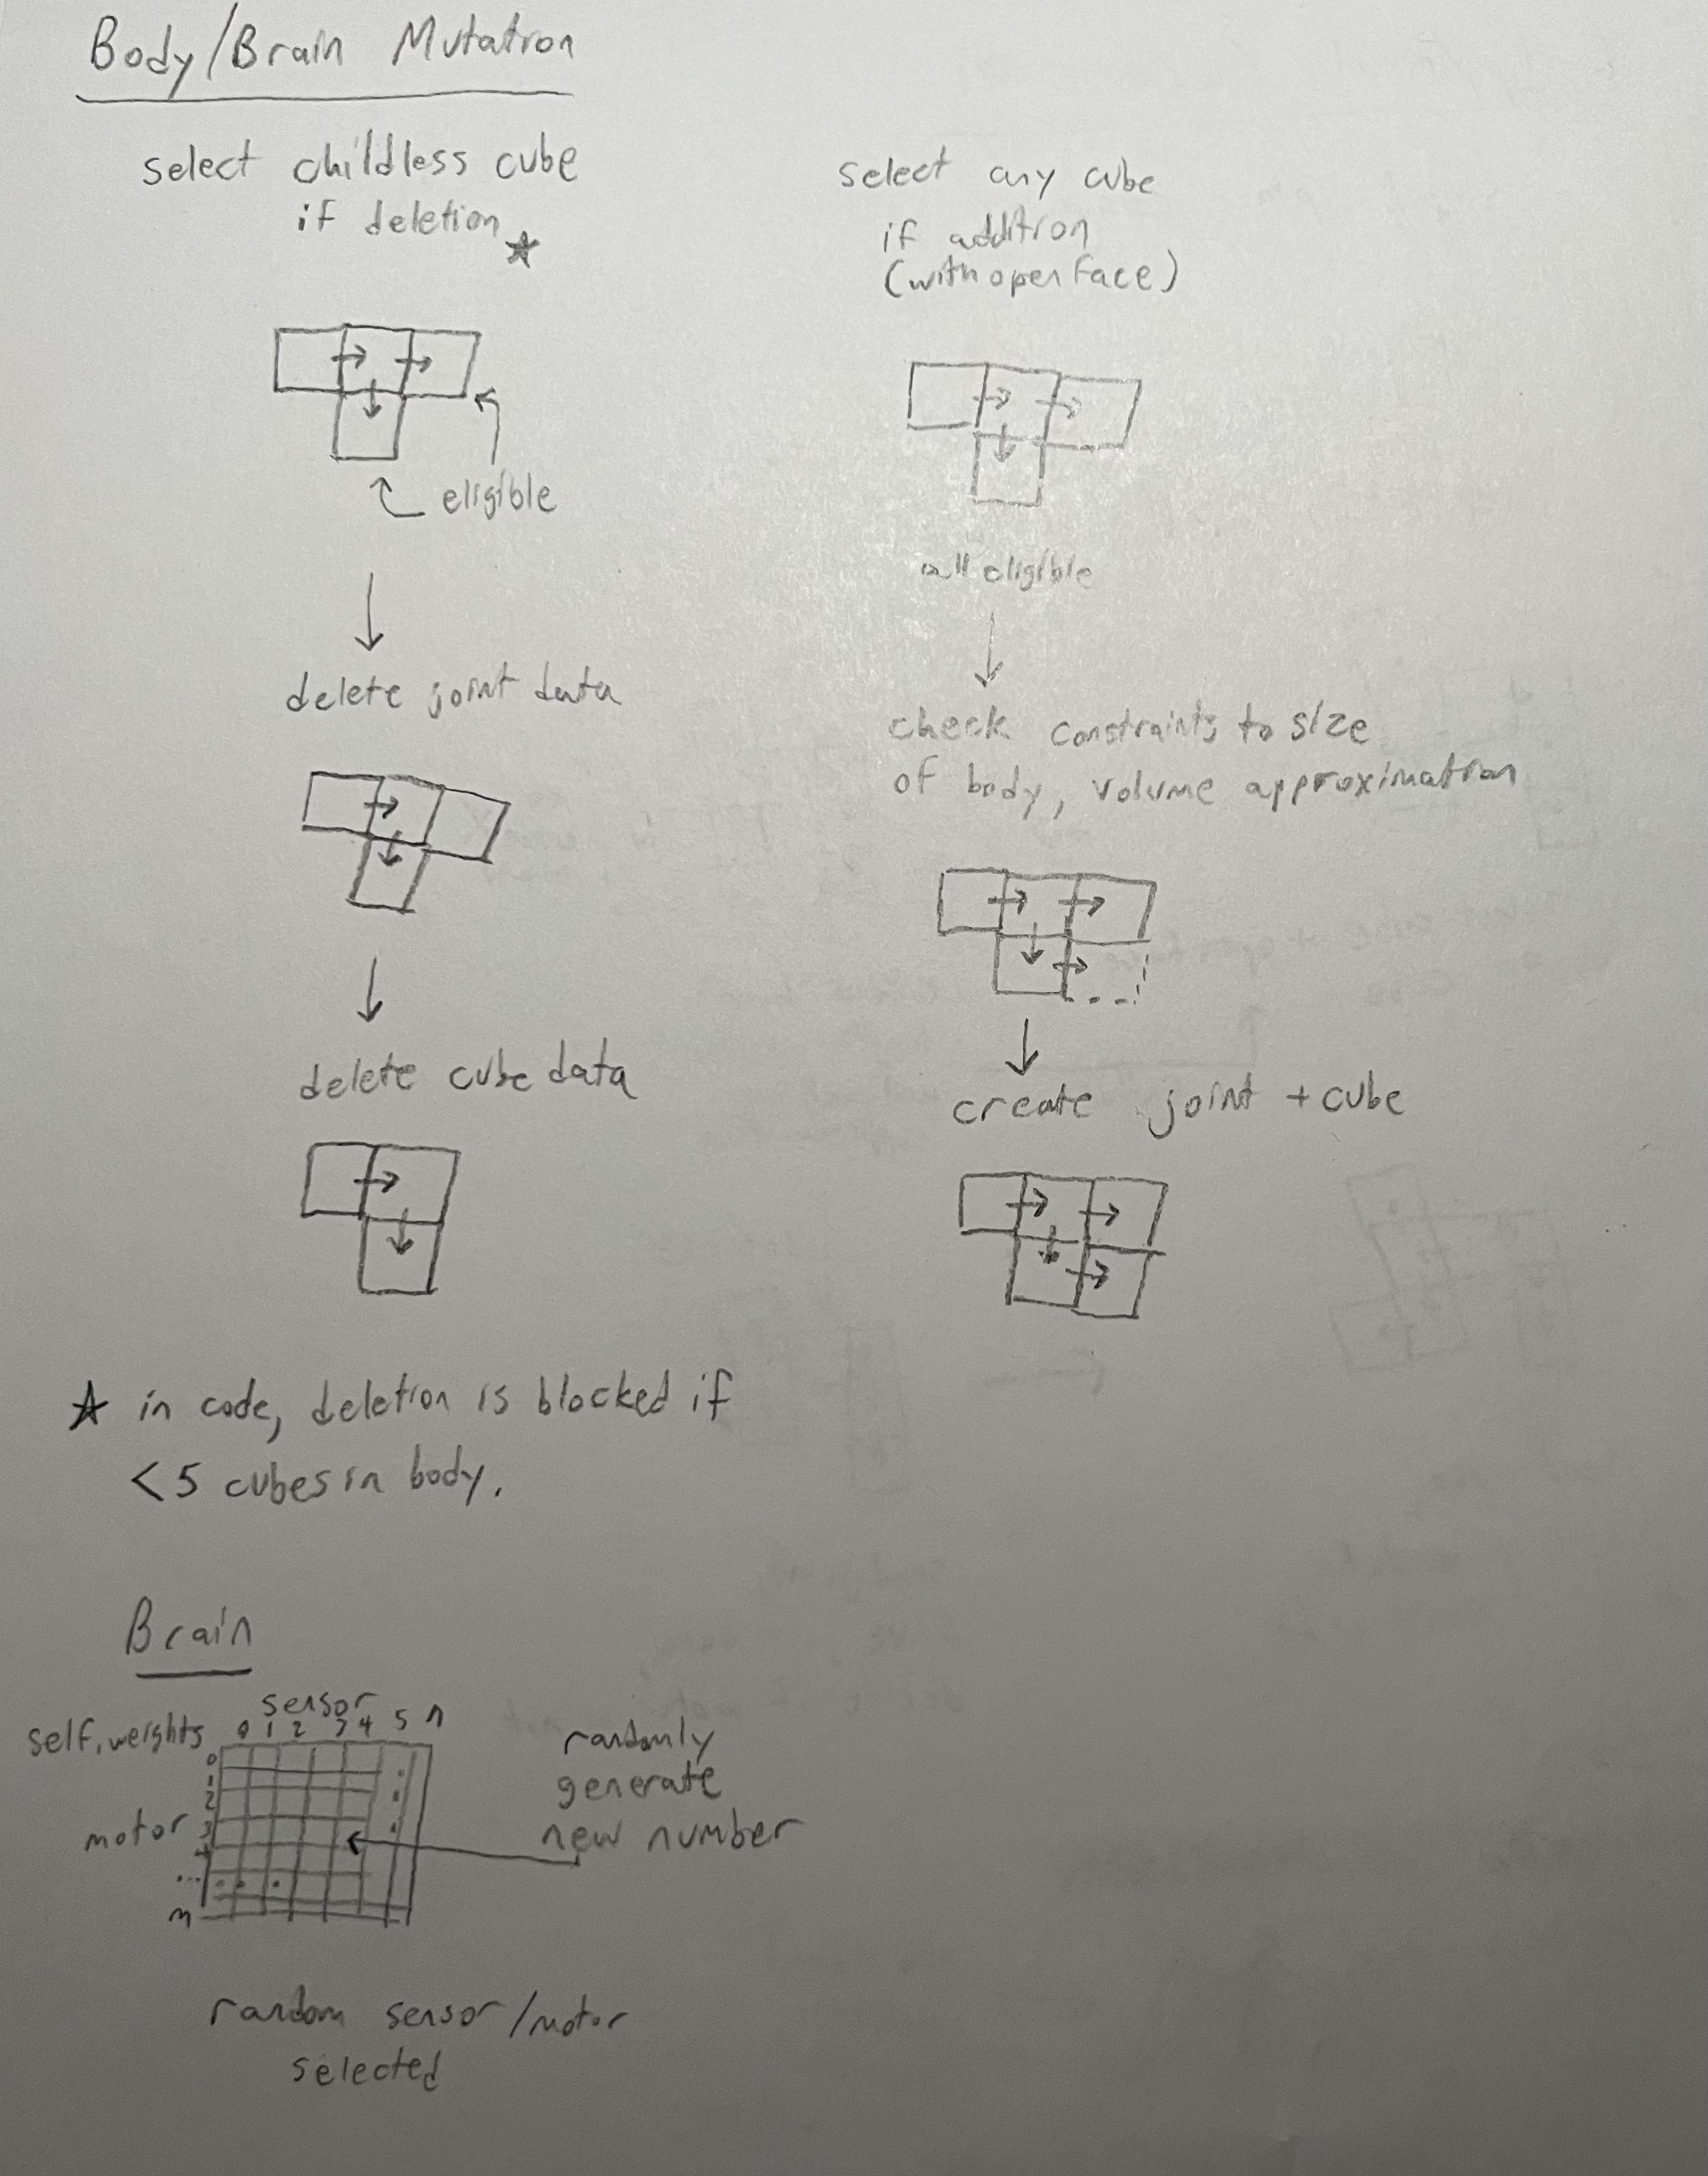 Body/Brain Mutation
select childless cube
if deletion ☆
eligible
delete joint data
delete cube data
select any cube
if addition
(with open face)
all eligible
check constraints to size
of body, volume approximation
create joint + cube
☆ in code, deletion is blocked if
< 5 cubes in body.
Brain
sensor
self.weights 0 1 2 3 4 5 n
0
1
2
motor 3
4
...
m
randomly
generate
new number
random sensor/motor
selected